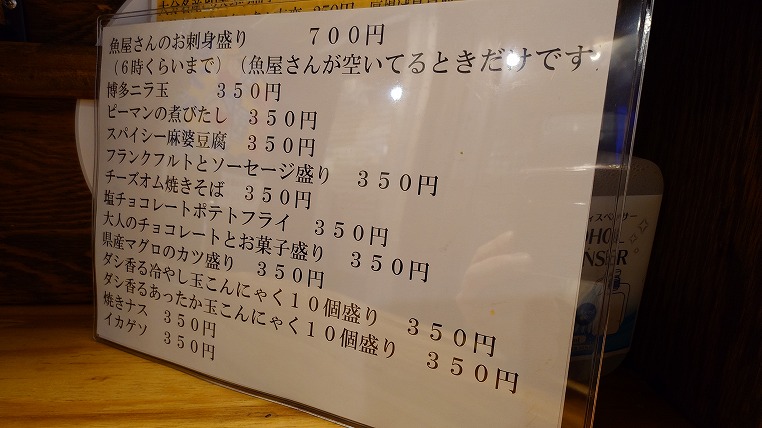 350円
魚屋さんのお刺身盛り 700円
(6時くらいまで)(魚屋さんが空いてるときだけです
博多ニラ玉 350円
ピーマンの煮びたし 350円
スパイシー麻婆豆腐 350円
フランクフルトとソーセージ盛り 350円
チーズオム焼きそば 350円
塩チョコレートポテトフライ 350円
大人のチョコレートとお菓子盛り 350円
県産マグロのカツ盛り 350円
ダシ香る冷やし玉こんにゃく10個盛り 350円
ダシ香るあったか玉こんにゃく10個盛り 350円
焼きナス 350円
イカゲソ 350円
ィスペンサー